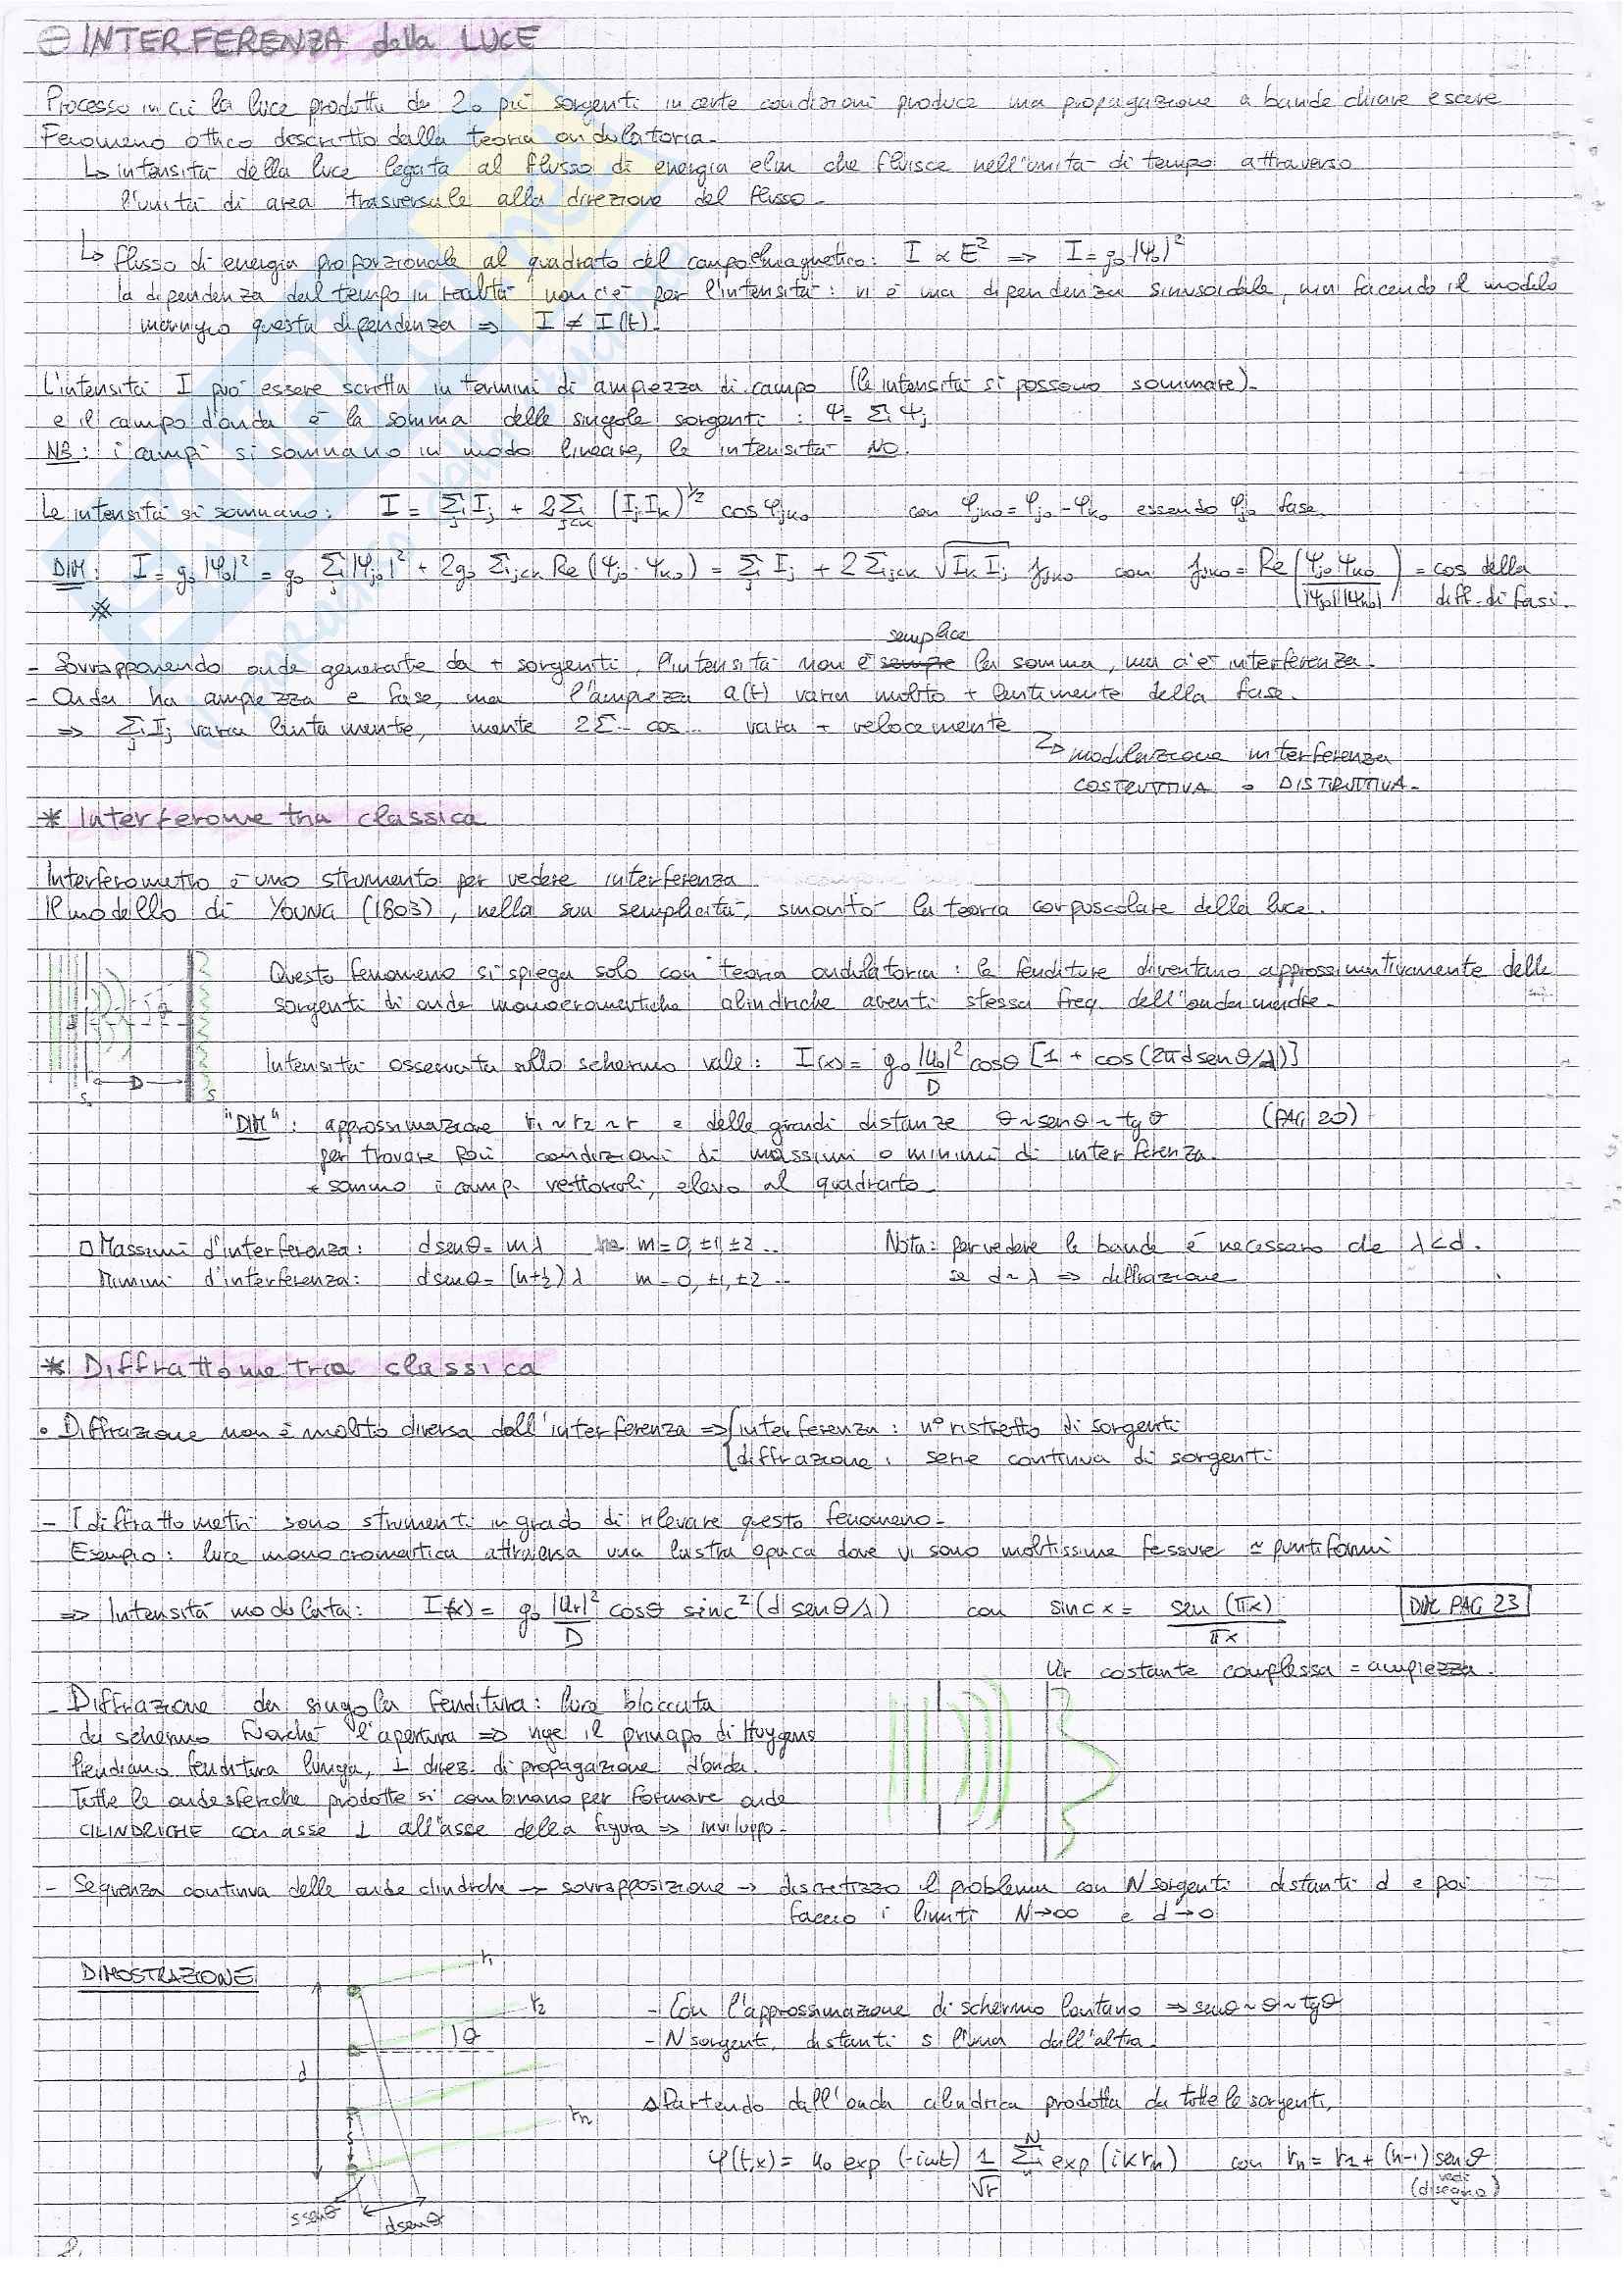 INTERFERENZA della LUCE
Processo in cui la luce prodotta da 2 o più sorgenti in certe condizioni produce una propagazione a bande chiare e scure
Fenomeno ottico descritto dalla teoria ondulatoria.
↳ intensità della luce legata al flusso di energia elm che fluisce nell'unità di tempo attraverso
l'unità di area trasversale alla direzione del flusso.
↳ flusso di energia proporzionale al quadrato del campo elmagnetico: I ∝ E² => I = g₀|Ψ₀|²
la dipendenza dal tempo in realtà non c'è per l'intensità: vi è una dipendenza sinusoidale, ma facendo il modulo
questa dipendenza => I ≠ I(t).
L'intensità I può essere scritta in termini di ampiezza di campo (le intensità si possono sommare).
e il campo d'onda è la somma delle singole sorgenti: Ψ = Σⱼ Ψⱼ
NB: i campi si sommano in modo lineare, le intensità NO.
Le intensità si sommano: I = Σⱼ Iⱼ + 2Σⱼ<ₖ (Iⱼ Iₖ)^1/2 cos φⱼₖ₀ con φⱼₖ₀ = φⱼ₀ - φₖ₀ essendo φⱼ₀ fase.
DIM: I = g₀|Ψ₀|² = g₀ Σⱼ|Ψⱼ₀|² + 2g₀ Σⱼ<ₖ Re(Ψⱼ₀·Ψₖ₀) = Σⱼ Iⱼ + 2Σⱼ<ₖ √(Iₖ Iⱼ) γⱼₖ₀ con γⱼₖ₀ = Re(Ψⱼ₀ Ψₖ₀ / |Ψⱼ₀||Ψₖ₀|) = cos della diff. di fasi.
semplice
- Sovrapponendo onde generate da + sorgenti, l'intensità non è sempre la somma, ma c'è interferenza.
- Onda ha ampiezza e fase, ma l'ampiezza a(t) varia molto + lentamente della fase.
=> Σⱼ Iⱼ varia lentamente, mentre 2Σ.. cos.. varia + velocemente
↳ modulazione interferenza
COSTRUTTIVA o DISTRUTTIVA.
* Interferometria classica
Interferometro è uno strumento per vedere interferenza
Il modello di YOUNG (1803), nella sua semplicità, smontò la teoria corpuscolare della luce.
Questo fenomeno si spiega solo con teoria ondulatoria: le fenditure diventano approssimativamente delle
sorgenti di onde monocromatiche cilindriche aventi stessa freq. dell'onda madre.
Intensità osservata sullo schermo vale: I(x) = g₀ |u₀|²/D cosθ [1 + cos(2πd senθ/λ)]
D
S₀ S
"DIM": approssimazione r₁ ~ r₂ ~ r e delle grandi distanze θ ~ senθ ~ tgθ (PAG 20)
per trovare poi condizioni di massimi o minimi di interferenza.
+ sommo i campi vettoriali, elevo al quadrato.
□ Massimi d'interferenza: d senθ = mλ m = 0, ±1, ±2 .. Nota: per vedere le bande è necessario che λ < d.
Minimi d'interferenza: d senθ = (m+½)λ m = 0, ±1, ±2 .. se d ~ λ => diffrazione
* Diffrattometria classica
• Diffrazione non è molto diversa dall'interferenza => { interferenza: n° ristretto di sorgenti
diffrazione: serie continua di sorgenti
- I diffrattometri sono strumenti in grado di rilevare questo fenomeno.
Esempio: luce monocromatica attraversa una lastra opaca dove vi sono moltissime fessure ≃ puntiformi
=> Intensità modulata: I(x) = g₀ |ur|²/D cosθ sinc²(d senθ/λ) con sinc x = sen(πx)/πx DIM PAG 23
ur costante complessa = ampiezza.
- Diffrazione da singola fenditura: luce bloccata
da schermo fuorché l'apertura => vige il principio di Huygens
Prendiamo fenditura lunga, ⊥ direz. di propagazione d'onda.
Tutte le onde sferiche prodotte si combinano per formare onde
CILINDRICHE con asse ⊥ all'asse della figura => inviluppo.
- Sequenza continua delle onde cilindriche → sovrapposizione → discretizzo il problema con N sorgenti distanti d e poi
faccio i limiti N→∞ e d→0
DIMOSTRAZIONE
r₁
r₂
θ
d
rn
s
s senθ
d senθ
- Con l'approssimazione di schermo lontano => senθ ~ θ ~ tgθ
- N sorgenti distanti s l'una dall'altra.
△ Partendo dall'onda cilindrica prodotta da tutte le sorgenti,
φ(t,x) = u₀ exp(-iωt) 1/√r Σₙᴺ exp(ikrₙ) con rₙ = r₁ + (n-1) senθ
(vedi disegno)